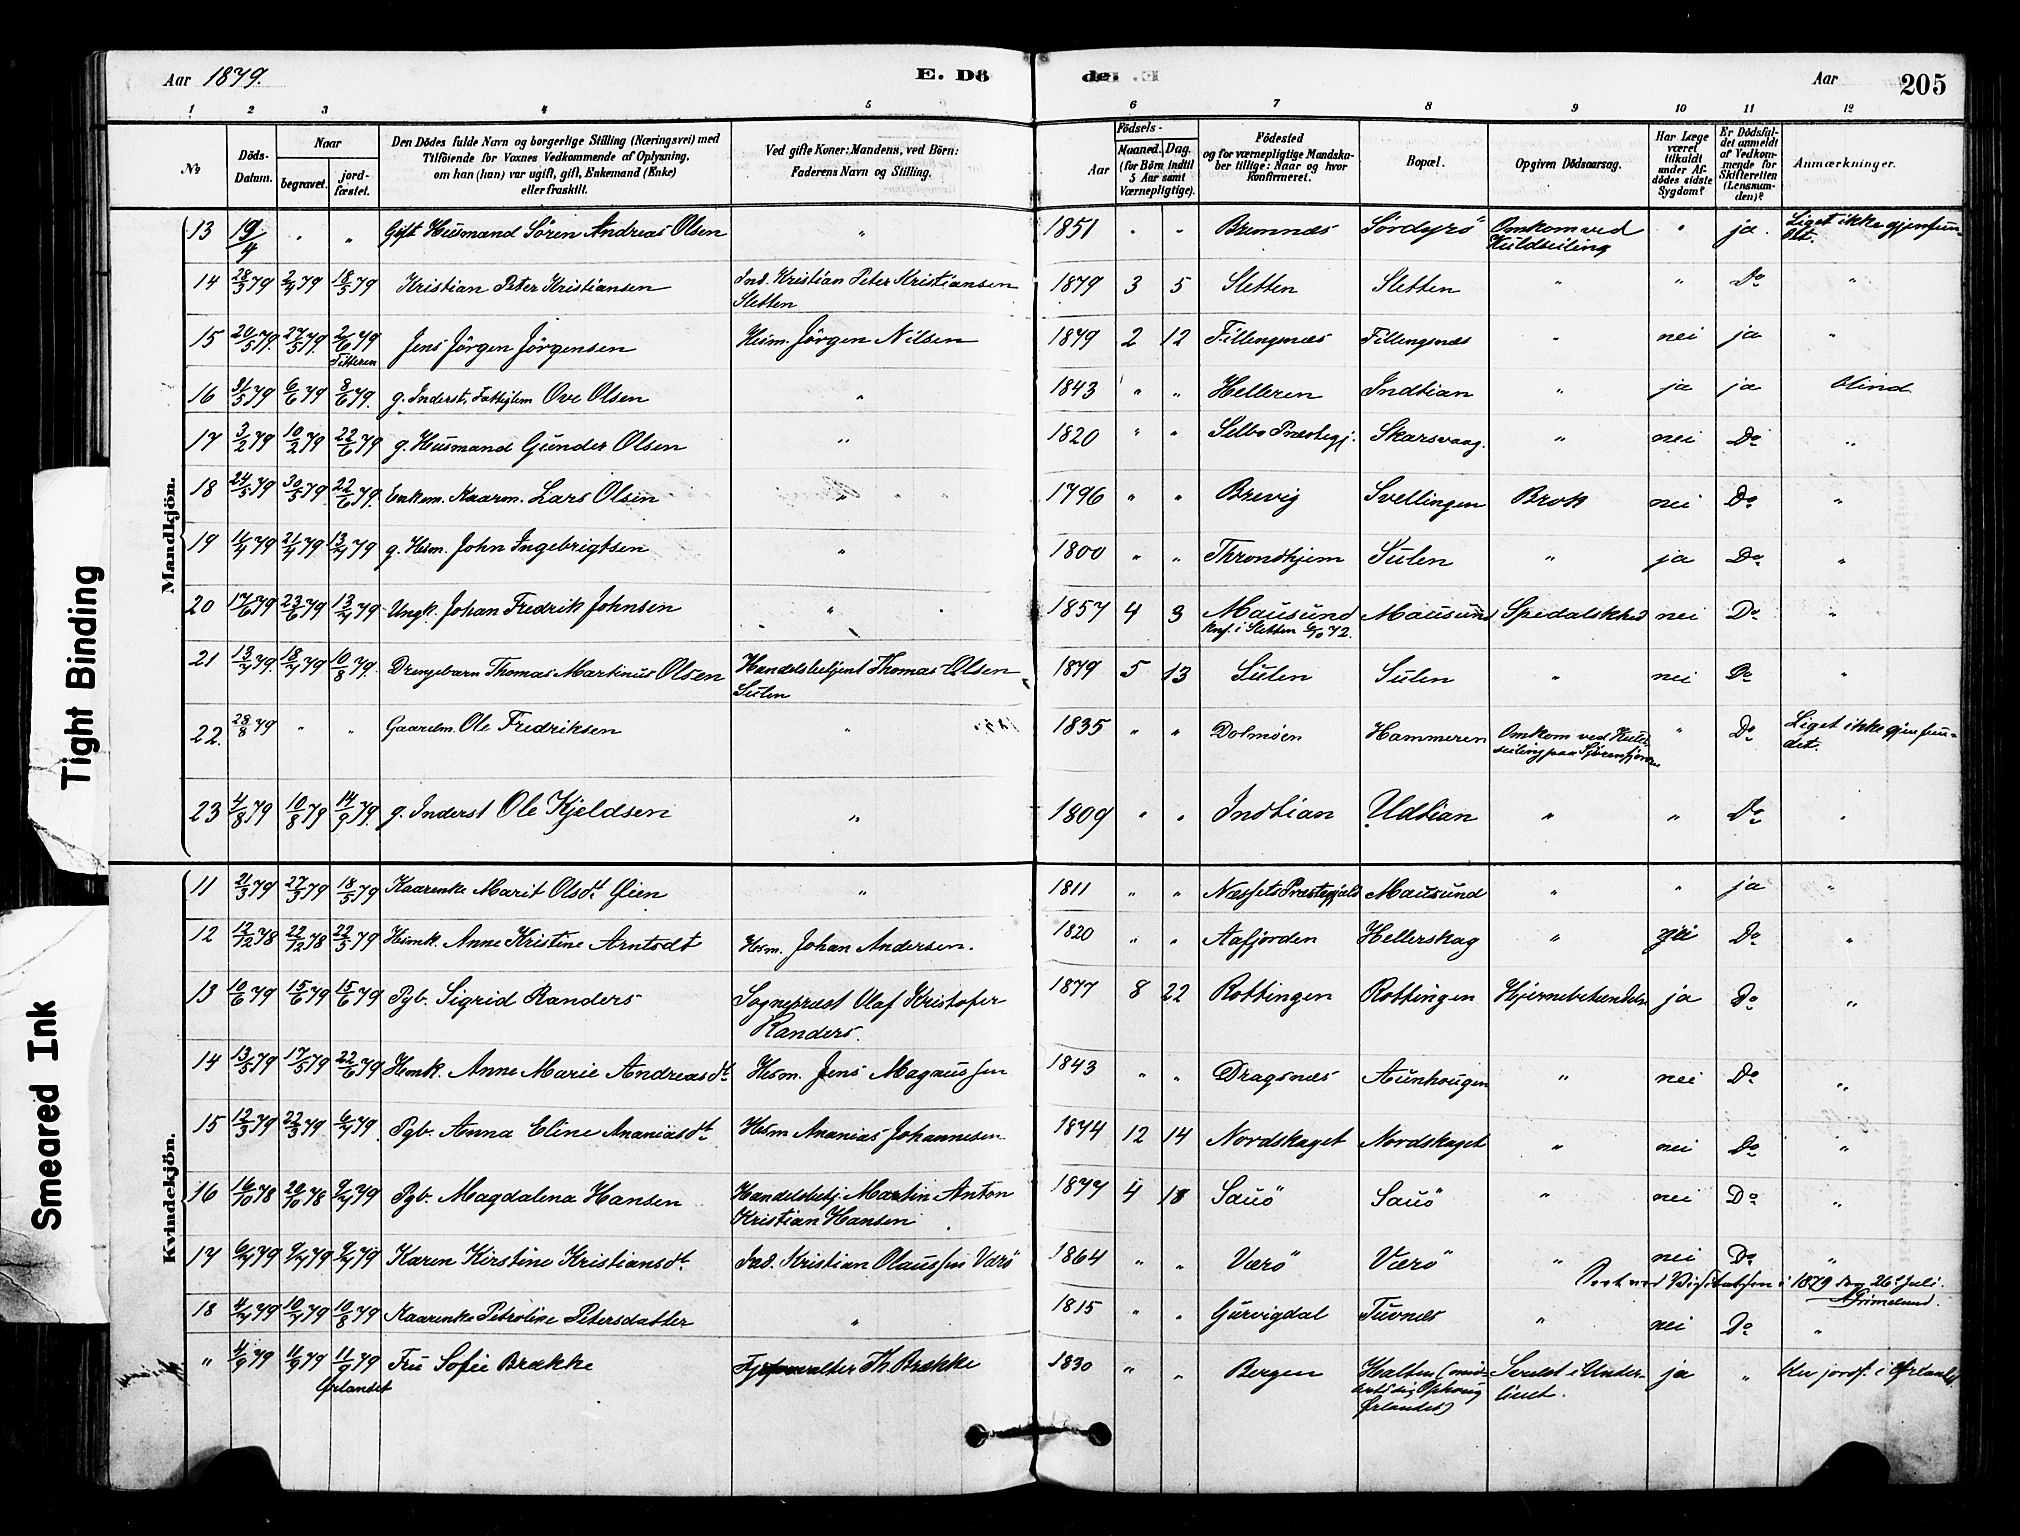 Aar 1879. E. Dö de. E. Aar 205
1 2 3 4 5 6 7 8 9 10 11 12
No
Döds-Datum.
Naar
begravet.
jord-fæstet.
Den Dödes fulde Navn og borgerlige Stilling (Næringsvei) med
Tilföiende for Voxnes Vedkommende af Oplysning,
om han (hun) var ugift, gift, Enkemand (Enke)
eller fraskilt.
Ved gifte Koner: Mandens, ved Börn:
Faderens Navn og Stilling.
Födsels-
Aar
Maaned. Dag.
(for Börn indtil
5 Aar samt
Værnepligtige).
Födested
og for værnepligtige Mandska-
ber tillige: Naar og hvor
Konfirmeret.
Bopæl.
Opgiven Dödsaarsag.
Har Læge
været
tilkaldt
under Af-
dödes sidste
Sygdom?
Er Dödsfal-
det anmeldt
af Vedkom-
mende for
Skifteretten
(Lensman-
den)?
Anmærkninger.
Mandkjön.
13 19/4 " " Gift Husmand Sören Andreas Olsen " 1851 " " Bremnæs Sördyrö Omkom ved " ja. Liget ikke gjenfun-
Kuldseiling det.
14 28/3 79 2/4 79 18/5 79 Kristian Peter Kristiansen Ind. Kristian Peter Kristiansen 1879 3 5 Sletten Sletten " " Do "
Sletten
15 20/5 79. 27/5 79. 2/6 79 Jens Jörgen Jörgensen Husm. Jörgen Nilsen 1879 2 12 Fillingsnæs Fillingsnæs " nei ja "
Titteren
16 31/5 79 6/6 79 8/6 79. g. Inderst, Fattiglem Ove Olsen " 1843 " " Helleren Indtian " ja ja blind
17 3/2 79 10/2 79 22/6 79 g. Husmand Gunder Olsen " 1820 " " Selbo Præstegj. Skarsvaag. " nei Do "
18 24/5 79 30/5 79 22/6 79. Enkem. Kaarm. Lars Olsen " 1796 " " Brevig Svellingen Brok nei Do "
19 11/4 79 21/4 79 13/7 79 g. Husm. John Ingebrigtsen " 1800 " " Throndhjem Sulen " ja Do "
20 17/6 79 23/6 79 13/7 79 Ungk. Johan Fredrik Johnsen " 1857 4 3 Mausund Mausund Spedalskhed nei Do "
Knf. i Sletten 6/10 72.
21 13/7 79. 18/7 79 10/8 79. Drengebarn Thomas Martinus Olsen Handelsbetjent Thomas Olsen 1879 5 13 Sulen Sulen " nei Do "
Sulen
22. 28/8 79 " " Gaardm. Ole Fredriksen " 1835 " " Dolmöen Hammeren Omkom ved Kuld- " Do Liget ikke gjenfun-
seiling paa det.
23 4/8 79 10/8 79 14/9 79. g. Inderst Ole Kjeldsen " 1809 " " Indtian Udtian " " Do "
Kvindekjön.
11 21/3 79 27/3 79 18/5 79 Kaarenke Marit Olsdt Öien " 1811 " " Næssets Præstegjæld Mausund " " ja "
12 12/12 78 22/12 78 22/5 79 Husmk. Anne Kristine Arntsdt Husm. Johan Andersen. 1820 " " Aafjorden Hellerskag " Do "
13 10/6 79 15/6 79 15/6 79 Pgb. Sigrid Randers Sognepræst Olaf Kristofer 1877 8 22 Rottingen Rottingen Hjernebetændelse ja Do "
Randers.
14 13/5 79 17/5 79 22/6 79 Husmk. Anne Marie Andreasdt Husm. Jens Magnussen 1843 " " Dragsnæs Aunhougen " nei Do "
15 12/3 79 22/3 79 6/7 79 Pgb. Anna Eline Ananiasdt Husm Ananias Johannesen 1877 12 14 Nordskaget Nordskaget " nei Do "
16 16/10 78 20/10 78 9/7 79 Pgb. Magdalena Hansen Handelsbetj. Martin Anton 1877 4 18 Sauö Sauö " nei Do "
Kristian Hansen
17 6/7 79 9/7 79 9/7 79 Karen Kirstine Kristiansdt. Ind. Kristian Olaussen Værö 1864 " " Værö Værö " nei Do "
ved Visitatsen i 1879 den 26de Juli.
Grimelund.
18 4/7 79 10/7 79 10/8 79 Kaarenke Petroline Petersdatter " 1815 " " Gurvigdal Tuvnæs " nei Do "
" 4/9 79 11/9 79 11/9 79 Fru Sofie Brække Fyrforvalter Th. Brække 1830 " " Bergen Halten (mid- Svulst i Under- ja " blev jordf. i Ørlandet
Ørlandet lertidig Ophoug livet.
Ørlandet)
Tight Binding
Smeared Ink